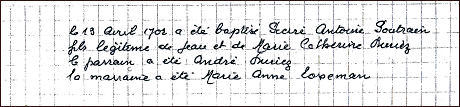 le 13 Avril 1702 a été baptisé Pierre Antoine Poutrain
fils légitime de Jean et de Marie Catherine Buriez
le parrain a été André Buriez
la marraine a été Marie Anne Coxeman